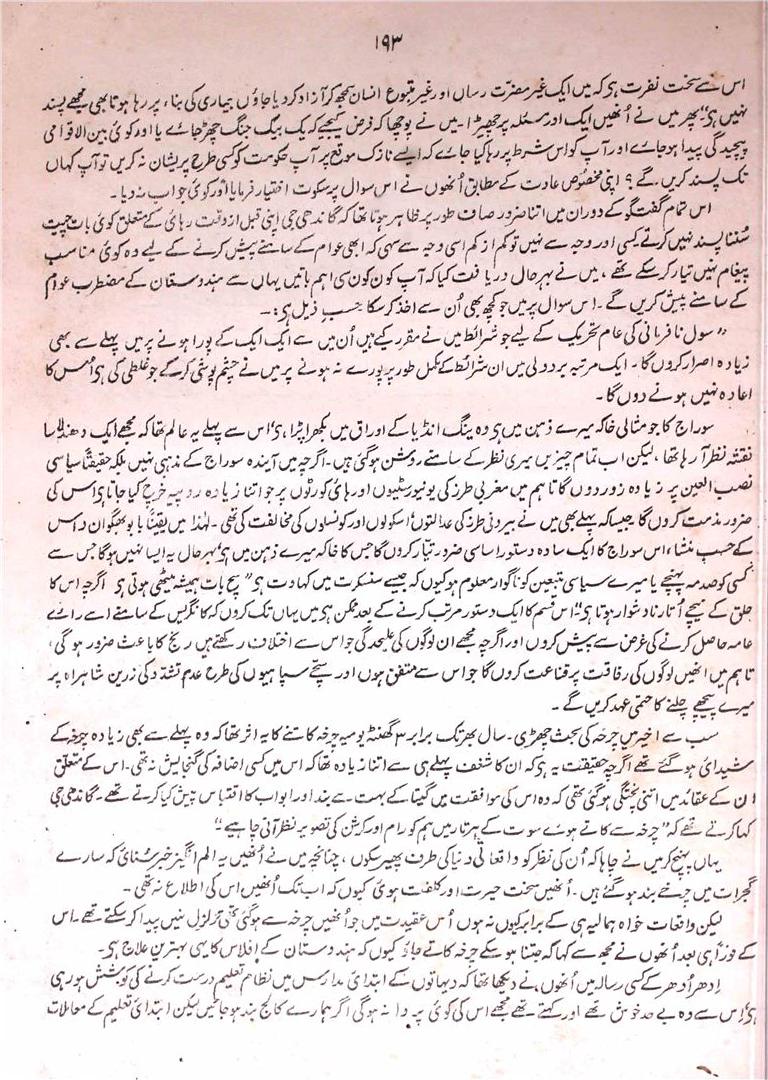 ۱۹۳
اس سے سخت نفرت ہی کہ میں ایک غیر مضرّت رساں اور غیر متبوع انسان سمجھ کر آزاد کر دیا جاؤں بیماری کی بناء پر رہا ہوتا بھی مجھے پسند
نہیں ہی" پھر میں نے اُنھیں ایک اور مسئلہ پر چھیڑا۔ میں نے پوچھا کہ فرض کیجیے کہ یک بیک جنگ چھڑ جائے یا اور کوئی بین الاقوامی
پیچیدگی پیدا ہو جائے اور آپ کو اس شرط پر رہا کیا جائے کہ ایسے نازک موقع پر آپ حکومت کو کسی طرح پریشان نہ کریں تو آپ کہاں
تک پسند کریں گے؟ اپنی مخصوص عادت کے مطابق اُنھوں نے اس سوال پر سکوت اختیار فرمایا اور کوئی جواب نہ دیا۔
اس تمام گفتگو کے دوران میں اتنا ضرور صاف طور پر ظاہر ہوتا تھا کہ گاندھی جی اپنی قبل از وقت رہائی کے متعلق کوئی بات چیت
سُننا پسند نہیں کرتے کیسی اور وجہ سے نہیں تو کم از کم اسی وجہ سے سہی کہ ابھی عوام کے سامنے پیش کرنے کے لیے وہ کوئی مناسب
پیغام نہیں تیار کر سکے تھے، میں نے بہر حال دریافت کیا کہ آپ کون کون سی اہم باتیں یہاں سے ہندوستان کے مضطرب عوام
کے سامنے پیش کریں گے۔ اس سوال پر میں جو کچھ بھی اُن سے اخذ کر سکا حسبِ ذیل ہی:۔
"سول نافرمانی کی عام تحریک کے لیے جو شرائط میں نے مقرر کیے ہیں اُن میں سے ایک ایک کے پورا ہونے پر میں پہلے سے بھی
زیادہ اصرار کروں گا۔ ایک مرتبہ بردولی میں ان شرائط کے مکمل طور پر پورے نہ ہونے پر میں نے چشم پوشی کر کے جو غلطی کی ہی اُس کا
اعادہ نہیں ہونے دوں گا۔
سوراج کا جو مثالی خاکہ میرے ذہن میں ہی وہ ینگ انڈیا کے اوراق میں بکھرا پڑا ہی اس سے پہلے یہ عالم تھا کہ مجھے ایک دھندلا سا
نقشہ نظر آ رہا تھا، لیکن اب تمام چیزیں میری نظر کے سامنے روشن ہو گئی ہیں۔ اگرچہ میں آیندہ سوراج کے مذہبی نہیں بلکہ حقیقتًا سیاسی
نصب العین پر زیادہ زور دوں گا تاہم میں مغربی طرز کی یونیورسٹیوں اور ہائی کورٹوں پر جو اتنا زیادہ روپیہ خرچ کیا جاتا ہی اس کی
ضرور مذمت کروں گا جیسا کہ پہلے بھی میں نے بیرونی طرز کی عدالتوں، اسکولوں اور کونسلوں کی مخالفت کی تھی۔ لہٰذا میں یقینًا بابو بھگوان داس
کے حسبِ منشاء اس سوراج کا ایک سادہ دستورِ اساسی ضرور تیار کروں گا جس کا خاکہ میرے ذہن میں ہی بہر حال یہ ایسا نہیں ہوگا جس سے
کسی کو صدمہ پہنچے یا میرے سیاسی متبعین کو ناگوار معلوم ہو کیوں کہ جیسے سنسکرت میں کہاوت ہی "سچ بات ہمیشہ میٹھی ہوتی ہی اگرچہ اس کا
حلق کے نیچے اُتارنا دشوار ہوتا ہی" اس قسم کا ایک دستور مرتب کرنے کے بعد ممکن ہی میں یہاں تک کروں کہ کانگریس کے سامنے اسے رائے
عامہ حاصل کرنے کی غرض سے پیش کروں اور اگرچہ مجھے ان لوگوں کی علیحدگی جو اس سے اختلاف رکھتے ہیں رنج کا باعث ضرور ہوگی،
تاہم میں اُنھیں لوگوں کی رفاقت پر قناعت کروں گا جو اس سے متفق ہوں اور سچّے سپاہیوں کی طرح عدم تشدّد کی زرین شاہراہ پر
میرے پیچھے چلنے کا حتمی عہد کریں گے۔
سب سے اخیر میں چرخہ کی بحث چھڑی۔ سال بھر تک برابر ۳ گھنٹہ یومیہ چرخہ کاتنے کا یہ اثر تھا کہ وہ پہلے سے بھی زیادہ چرخہ کے
شیدائی ہو گئے تھے اگرچہ حقیقت یہ ہی کہ ان کا شغف پہلے ہی سے اتنا زیادہ تھا کہ اس میں کسی اضافہ کی گنجایش نہ تھی۔ اس کے متعلق
ان کے عقائد میں اتنی پختگی ہو گئی تھی کہ وہ اس کی موافقت میں گیتا کے بہت سے بند اور ابواب کا اقتباس پیش کیا کرتے تھے۔ گاندھی جی
کہا کرتے تھے کہ "چرخہ سے کاتے ہوئے سوت کے ہر تار میں ہم کو رام اور کرشن کی تصویر نظر آنی چاہیے۔"
یہاں پہنچ کر میں نے چاہا کہ اُن کی نظر کو واقعاتی دنیا کی طرف پھیر سکوں، چنانچہ میں نے اُنھیں یہ الم انگیز خبر سُنائی کہ سارے
گجرات میں چرخے بند ہو گئے ہیں۔ اُنھیں سخت حیرت اور کلفت ہوئی کیوں کہ اب تک اُنھیں اس کی اطلاع نہ تھی۔
لیکن واقعات خواہ ہمالیہ ہی کے برابر کیوں نہ ہوں اُس عقیدت میں جو اُنھیں چرخہ سے ہو گئی تھی تزلزل نہیں پیدا کر سکتے تھے۔ اس
کے فورًا ہی بعد اُنھوں نے مجھ سے کہا کہ جتنا ہو سکے چرخہ کاتے جاؤ کیوں کہ ہندوستان کے افلاس کا یہی بہترین علاج ہی۔
اِدھر اُدھر کے کسی رسالہ میں اُنھوں نے دیکھا تھا کہ دیہاتوں کے ابتدائی مدارس میں نظامِ تعلیم درست کرنے کی کوشش ہو رہی
ہی، اِس سے وہ بے حد خوش تھے اور کہتے تھے مجھے اس کی کوئی پروا نہ ہوگی اگر ہمارے کالج بند ہو جائیں لیکن ابتدائی تعلیم کے معاملات